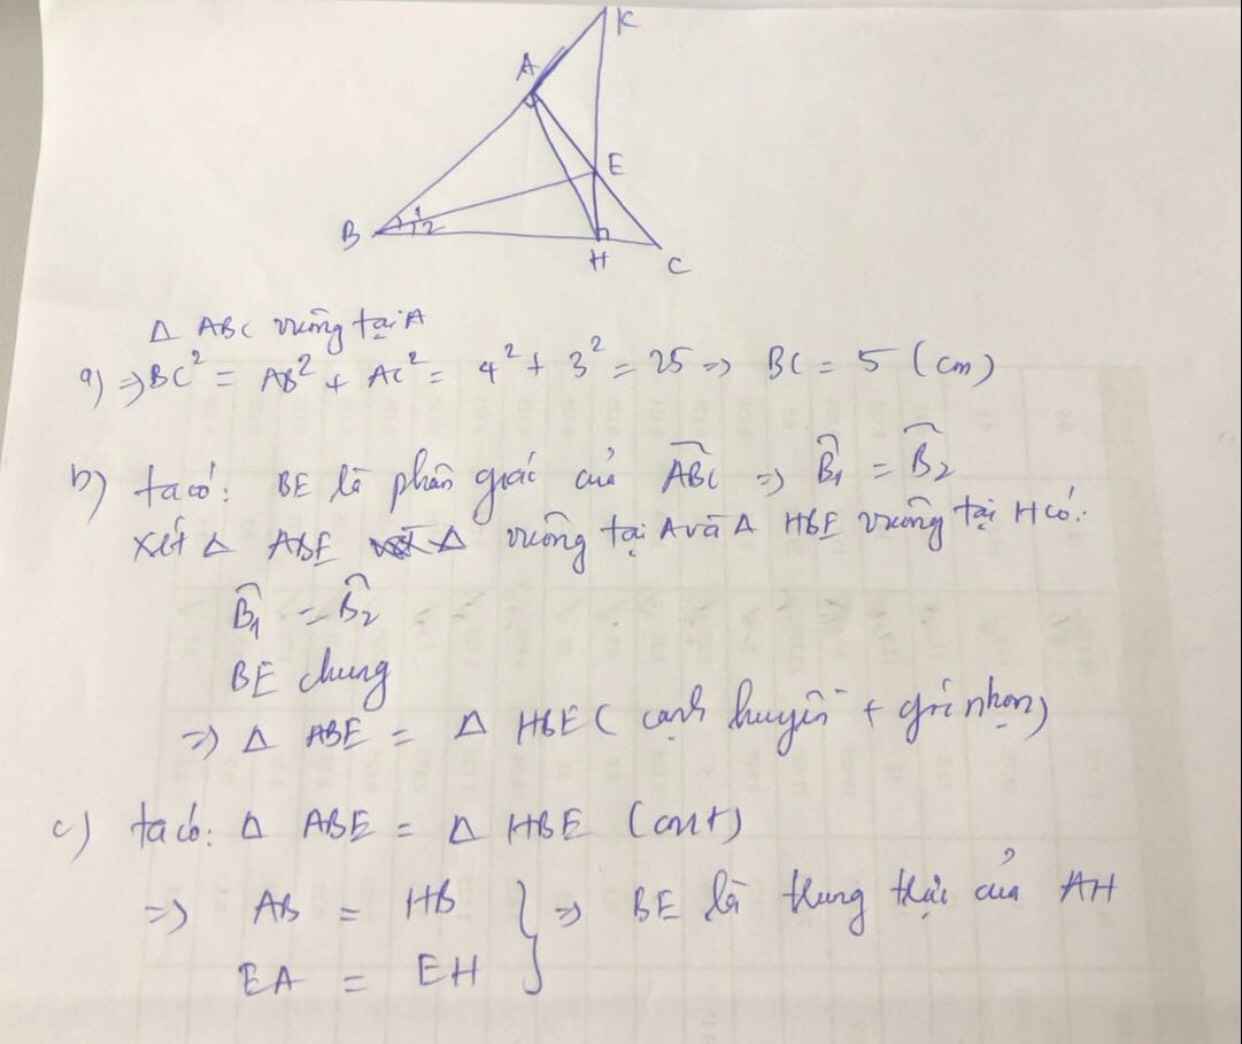 K
A
E
B 1 2
H
C
Δ ABC vuông tại A
a) => BC² = AB² + AC² = 4² + 3² = 25 => BC = 5 (cm)
b) ta có: BE là phân giác của ABC => B̂₁ = B̂₂
xét Δ ABE Δ vuông tại A và Δ HBE vuông tại H có:
B̂₁ = B̂₂
BE chung
=> Δ ABE = Δ HBE ( cạnh huyền + góc nhọn)
c) ta có: Δ ABE = Δ HBE (cmt)
=> AB = HB } => BE là trung trực của AH
EA = EH